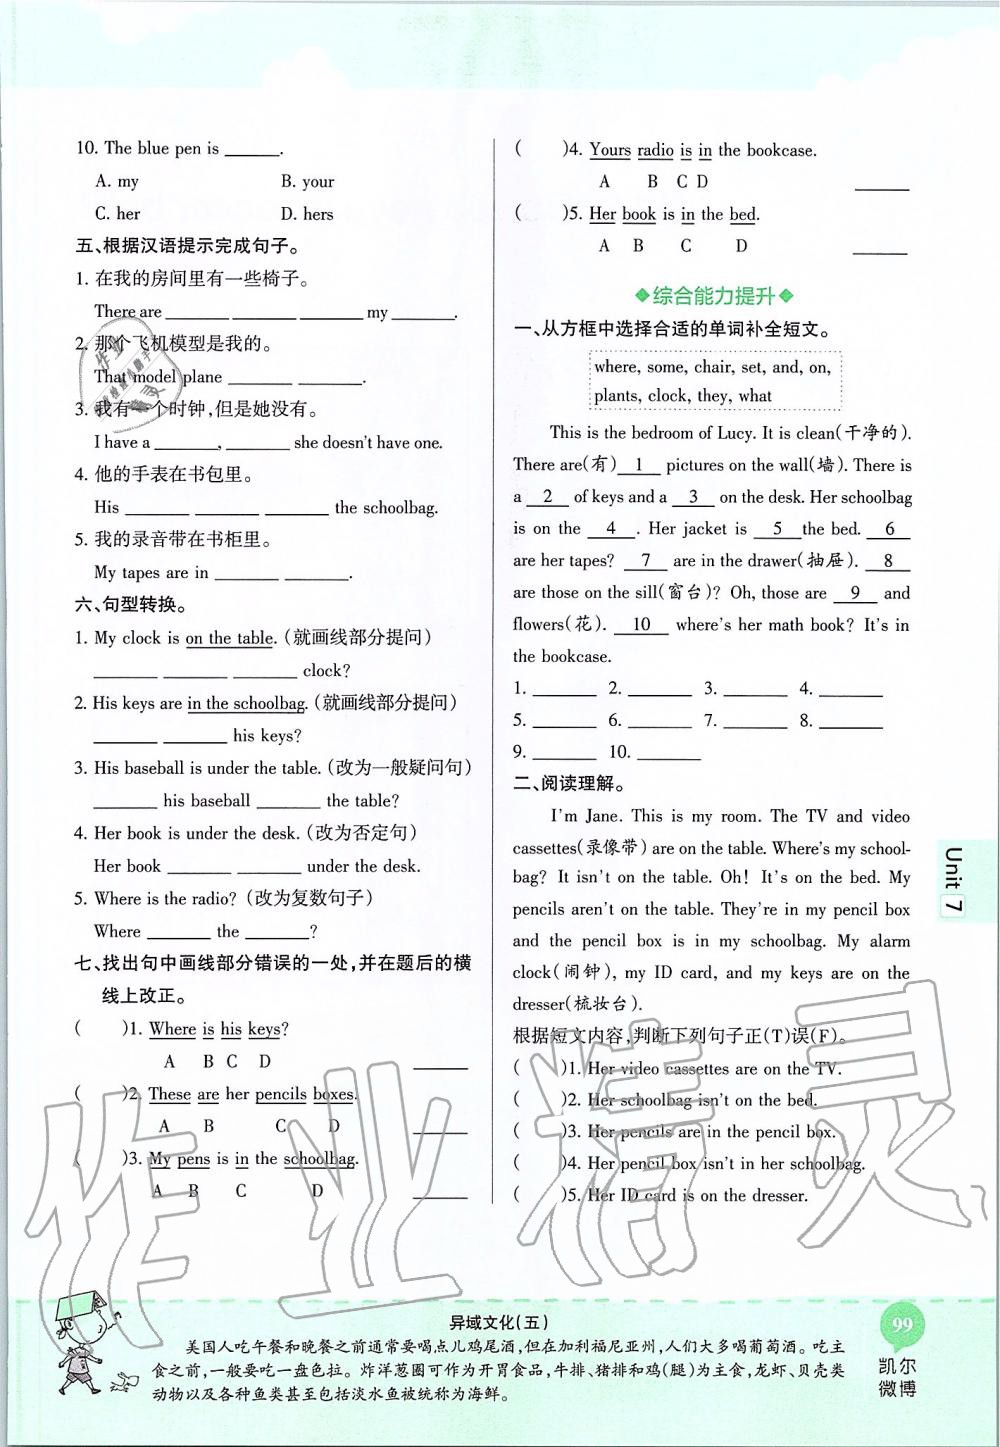 10. The blue pen is ______.
A. my B. your
C. her D. hers
五、根据汉语提示完成句子。
1. 在我的房间里有一些椅子。
There are ______ ______ ______ my ______.
2. 那个飞机模型是我的。
That model plane ______ ______.
3. 我有一个时钟,但是她没有。
I have a ______, ______ she doesn't have one.
4. 他的手表在书包里。
His ______ ______ ______ the schoolbag.
5. 我的录音带在书柜里。
My tapes are in ______ ______.
六、句型转换。
1. My clock is on the table. (就画线部分提问)
______ ______ ______ clock?
2. His keys are in the schoolbag. (就画线部分提问)
______ ______ his keys?
3. His baseball is under the table. (改为一般疑问句)
______ his baseball ______ the table?
4. Her book is under the desk. (改为否定句)
Her book ______ ______ under the desk.
5. Where is the radio? (改为复数句子)
Where ______ the ______?
七、找出句中画线部分错误的一处,并在题后的横
线上改正。
( )1. Where is his keys?
A B C D ______
( )2. These are her pencils boxes.
A B C D ______
( )3. My pens is in the schoolbag.
A B C D ______
( )4. Yours radio is in the bookcase.
A B C D ______
( )5. Her book is in the bed.
A B C D ______
综合能力提升
一、从方框中选择合适的单词补全短文。
where, some, chair, set, and, on,
plants, clock, they, what
This is the bedroom of Lucy. It is clean(干净的).
There are(有) 1 pictures on the wall(墙). There is
a 2 of keys and a 3 on the desk. Her schoolbag
is on the 4 . Her jacket is 5 the bed. 6
are her tapes? 7 are in the drawer(抽屉). 8
are those on the sill(窗台)? Oh, those are 9 and
flowers(花). 10 where's her math book? It's in
the bookcase.
1. ______ 2. ______ 3. ______ 4. ______
5. ______ 6. ______ 7. ______ 8. ______
9. ______ 10. ______
二、阅读理解。
I'm Jane. This is my room. The TV and video
cassettes(录像带) are on the table. Where's my school-
bag? It isn't on the table. Oh! It's on the bed. My
pencils aren't on the table. They're in my pencil box
and the pencil box is in my schoolbag. My alarm
clock(闹钟), my ID card, and my keys are on the
dresser(梳妆台).
根据短文内容,判断下列句子正(T)误(F)。
( )1. Her video cassettes are on the TV.
( )2. Her schoolbag isn't on the bed.
( )3. Her pencils are in the pencil box.
( )4. Her pencil box isn't in her schoolbag.
( )5. Her ID card is on the dresser.
Unit 7
异域文化(五)
美国人吃午餐和晚餐之前通常要喝点儿鸡尾酒,但在加利福尼亚州,人们大多喝葡萄酒。吃主
食之前,一般要吃一盘色拉。炸洋葱圈可作为开胃食品,牛排、猪排和鸡(腿)为主食,龙虾、贝壳类
动物以及各种鱼类甚至包括淡水鱼被统称为海鲜。
99
凯尔
微博
作业精灵